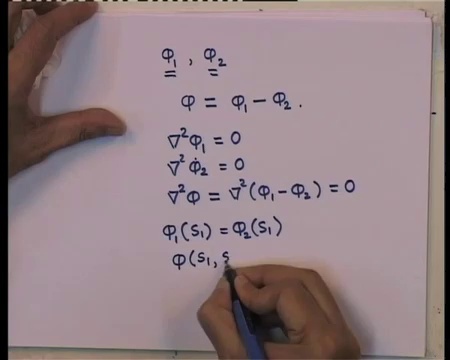 φ₁ , φ₂
φ = φ₁ − φ₂ .
∇²φ₁ = 0
∇²φ₂ = 0
∇²φ = ∇²(φ₁ − φ₂) = 0
φ₁(S₁) = φ₂(S₁)
φ(S₁, S